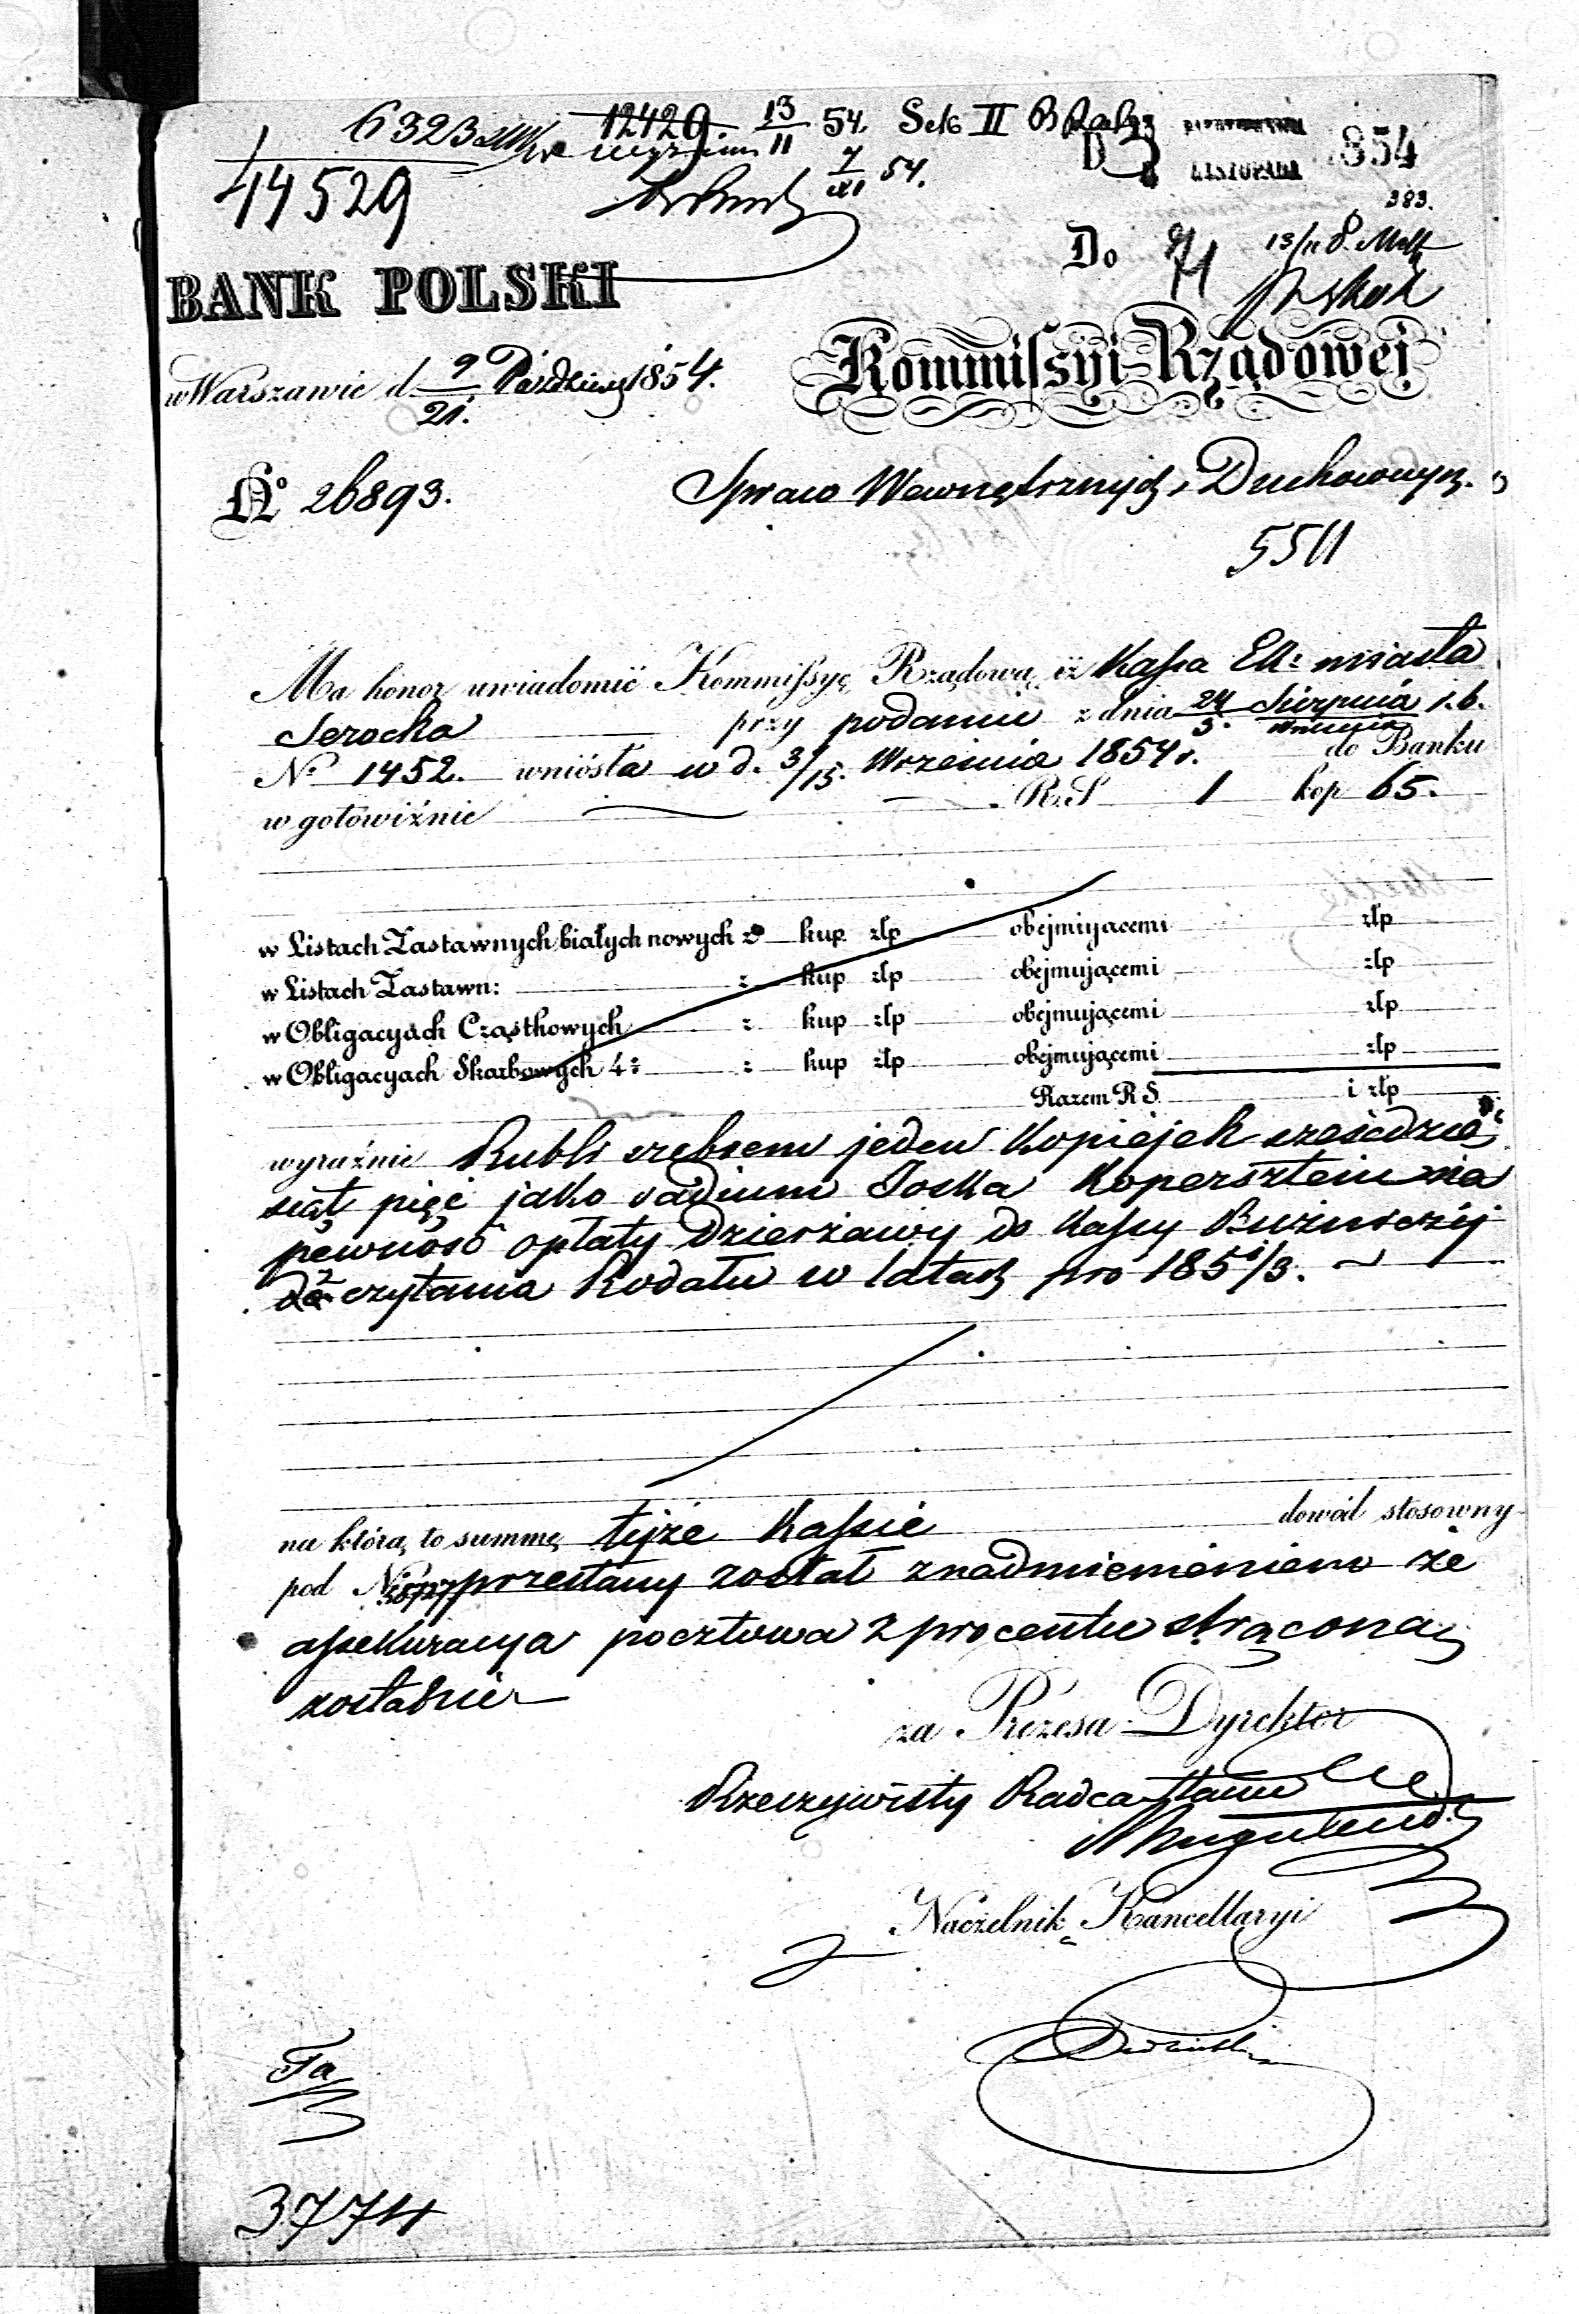 6323
12429. 13/11 54. Sek II
854
44529
7/XI 54.
LISTOPADA
383.
Do
13/11
BANK POLSKI
Kommissyi Rządowej
w Warszawie d. 9/21. Paździer 1854.
Spraw Wewnętrznych i Duchownych.
No 26893.
5511
Ma honor uwiadomić Kommissyę Rządową, iż Kassa Ek: miasta
Serocka przy podaniu z dnia 24/5. Sierpnia/Września r. b.
No 1452. wniosła w d. 3/15. Września 1854 r. do Banku
w gotowiźnie R.S. 1 kop 65.
w Listach Zastawnych białych nowych z kup złp obejmującemi złp
w Listach Zastawn: z kup złp obejmującemi złp
w Obligacyach Cząstkowych z kup złp obejmującemi złp
w Obligacyach Skarbowych 4: z kup złp obejmującemi złp
Razem R S. i złp
wyraźnie Rubli srebrem jeden Kopiejek sześćdzie
siąt pięć jako vadium Joska Kopersztein na
pewność opłaty dzierżawy do Kassy Bużniczej
z czytania Rodału w latach pro 1851/3.
na którą to summę tejże Kassie dowód stosowny
pod No przesłany został z nadmienieniem że
assekuracya pocztowa z procentu strąconą
zostanie
za Prezesa Dyrektor
Rzeczywisty Radca Stanu
Naczelnik Kancellaryi
3774